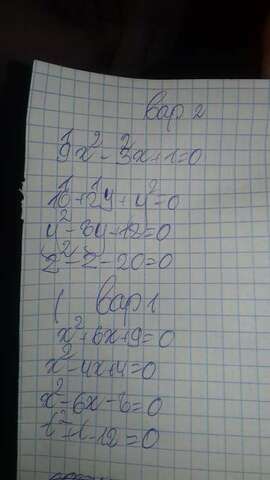 вар 2
9x² - 3x + 1 = 0
10 + 2y + y² = 0
y² - 8y - 12 = 0
z² - z - 20 = 0
( вар 1
x² + 6x + 9 = 0
x² - 4x + 4 = 0
x² - 6x - 6 = 0
t² + t - 12 = 0